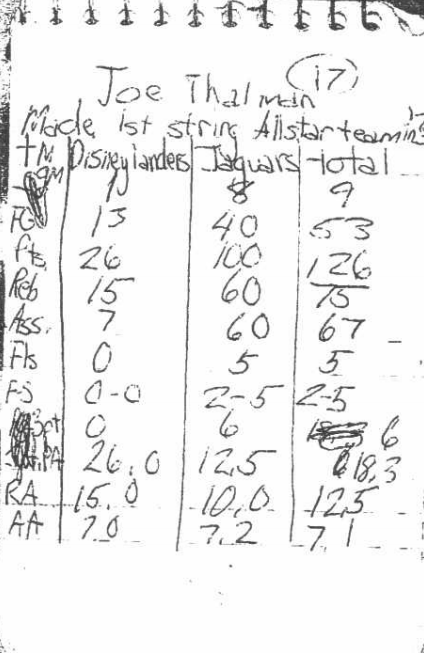 Joe Thalman (17)
Made 1st string Allstarteam in
TM Disneylanders Jaguars total
GM 1 8 9
FG 13 40 53
Pts. 26 100 126
Reb 15 60 75
Ass. 7 60 67
Fls 0 5 5
FS 0-0 2-5 2-5
3pt 0 6 6
PA 26.0 12.5 18.3
RA 15.0 10.0 12.5
AA 7.0 7.2 7.1